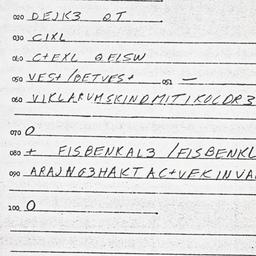 020 DEJK3 QT
030 CIXL
040 C+EXL QFISW
050 VES+/OETVES+ 051 —
060 VIKLARUMSKINDMITIKOCDR3
070 O
080 + FISBENKAL3/FISBENKL
090 ARAJNG3HAKTAC+VFKINVA
100 O